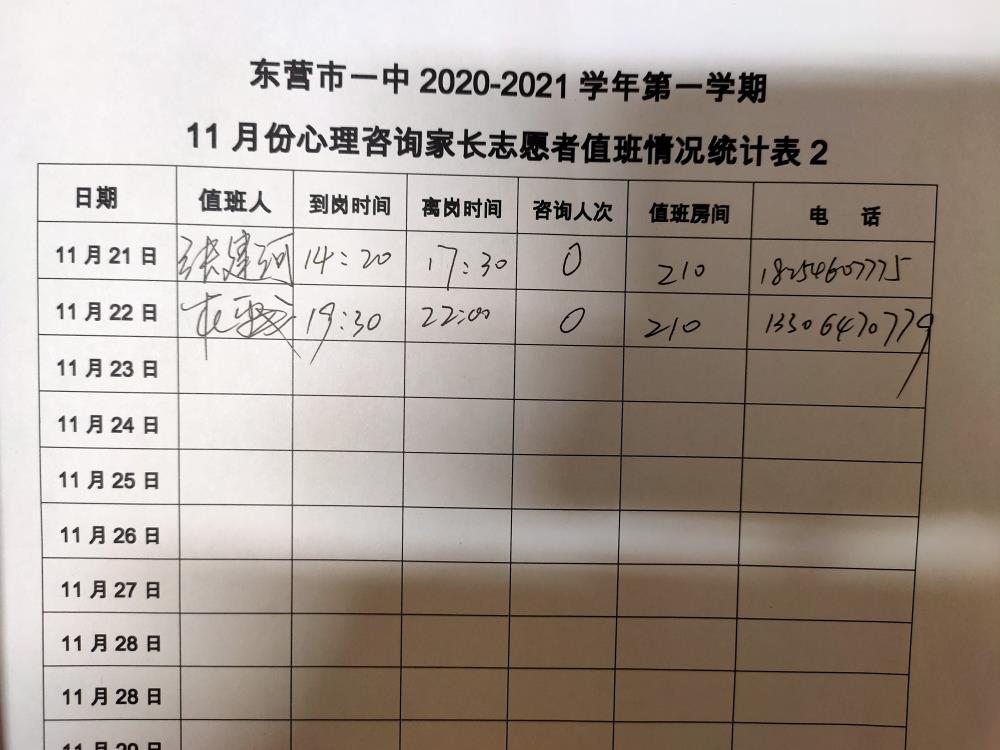 东营市一中 2020-2021 学年第一学期
11 月份心理咨询家长志愿者值班情况统计表 2
日期 值班人 到岗时间 离岗时间 咨询人次 值班房间 电 话
11 月 21 日 张建河 14:20 17:30 0 210 18254607775
11 月 22 日 19:30 22:00 0 210 13306470779
11 月 23 日
11 月 24 日
11 月 25 日
11 月 26 日
11 月 27 日
11 月 28 日
11 月 28 日
11 月 29 日